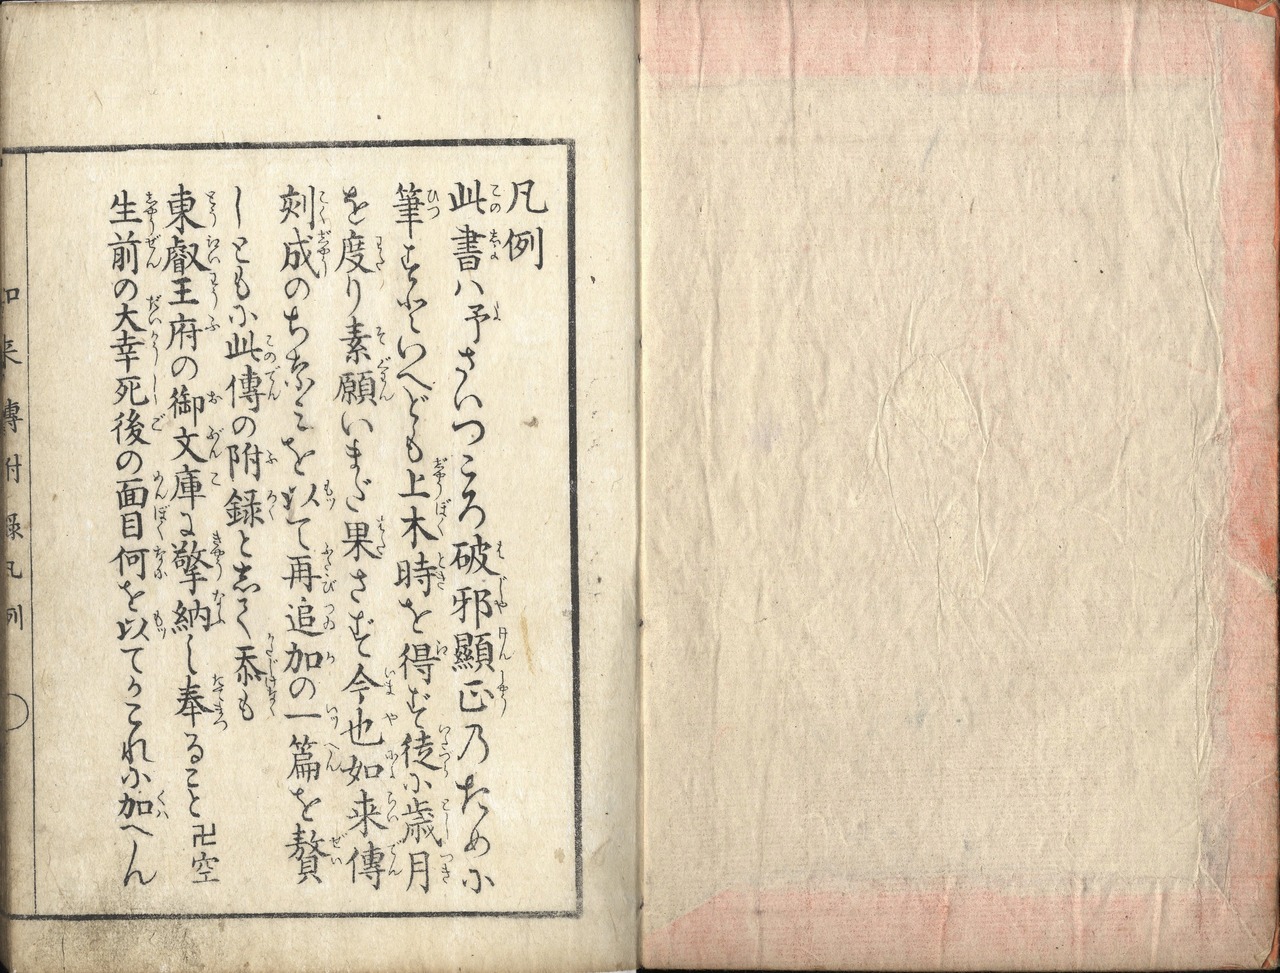 凡例
此書ハ予さいつころ破邪顯正乃ために
筆すといへども上木時を得ず徒に歳月
を度り素願いまだ果さず今也如来傳
刻成のちなミを以て再追加の一篇を贅
しともに此傳の附録と志て忝も
東叡王府の御文庫に擎納し奉ること卍空
生前の大幸死後の面目何を以てかこれに加へん
如来傳附録凡例